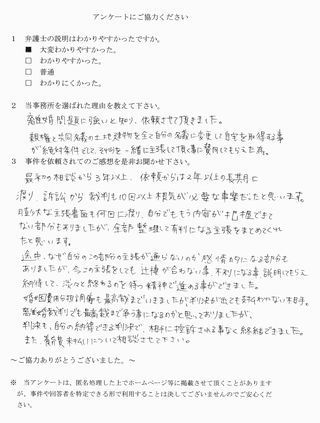 アンケートにご協力ください
1 弁護士の説明はわかりやすかったですか。
■ 大変わかりやすかった。
□ わかりやすかった。
□ 普通
□ わかりにくかった。
2 当事務所を選ばれた理由を教えて下さい。
離婚問題に強いと知り、依頼させて頂きました。
親権と共同名義の土地建物を全て自分の名義に変更して自宅を取得する事
が絶対条件でして、それを一緒に主張して頂く事に賛同してもらえた為。
3 事件を依頼されてのご感想を是非お聞かせ下さい。
最初の相談から3年以上、依頼からは2年以上の長期に
渡り、訴訟から裁判も10回以上と根気が必要な事案だったと思います。
膨大な主張書面も何回に渡り、自分でももう内容が把握できて
ない部分もありましたが、全部整理して有利になる主張をまとめてくれ
たと思います。
途中、なぜ自分のこの部分の主張が通らないのか感情的になる部分も
ありましたが、今この主張をしても辻褄が合わない事、不利になる事説明してもらえ
納得して、淡々と終わるのを待つ精神で進める事ができました。
婚姻費用分担調停も最高裁までいきましたが判決が出ても支払わない相手。
離婚裁判も最高裁まで争う事になるのかと思っておりましたが、
判決も、自分の納得できる判決で、相手に控訴される事なく終結できました。
また、養育費未払いについて相談させて下さい。
～ご協力ありがとうございました。～
※ 当アンケートは、匿名処理した上でホームページ等に掲載させて頂くことがあります
が、事件や回答者を特定できる形で利用することは決してございませんのでご安心くだ
さい。